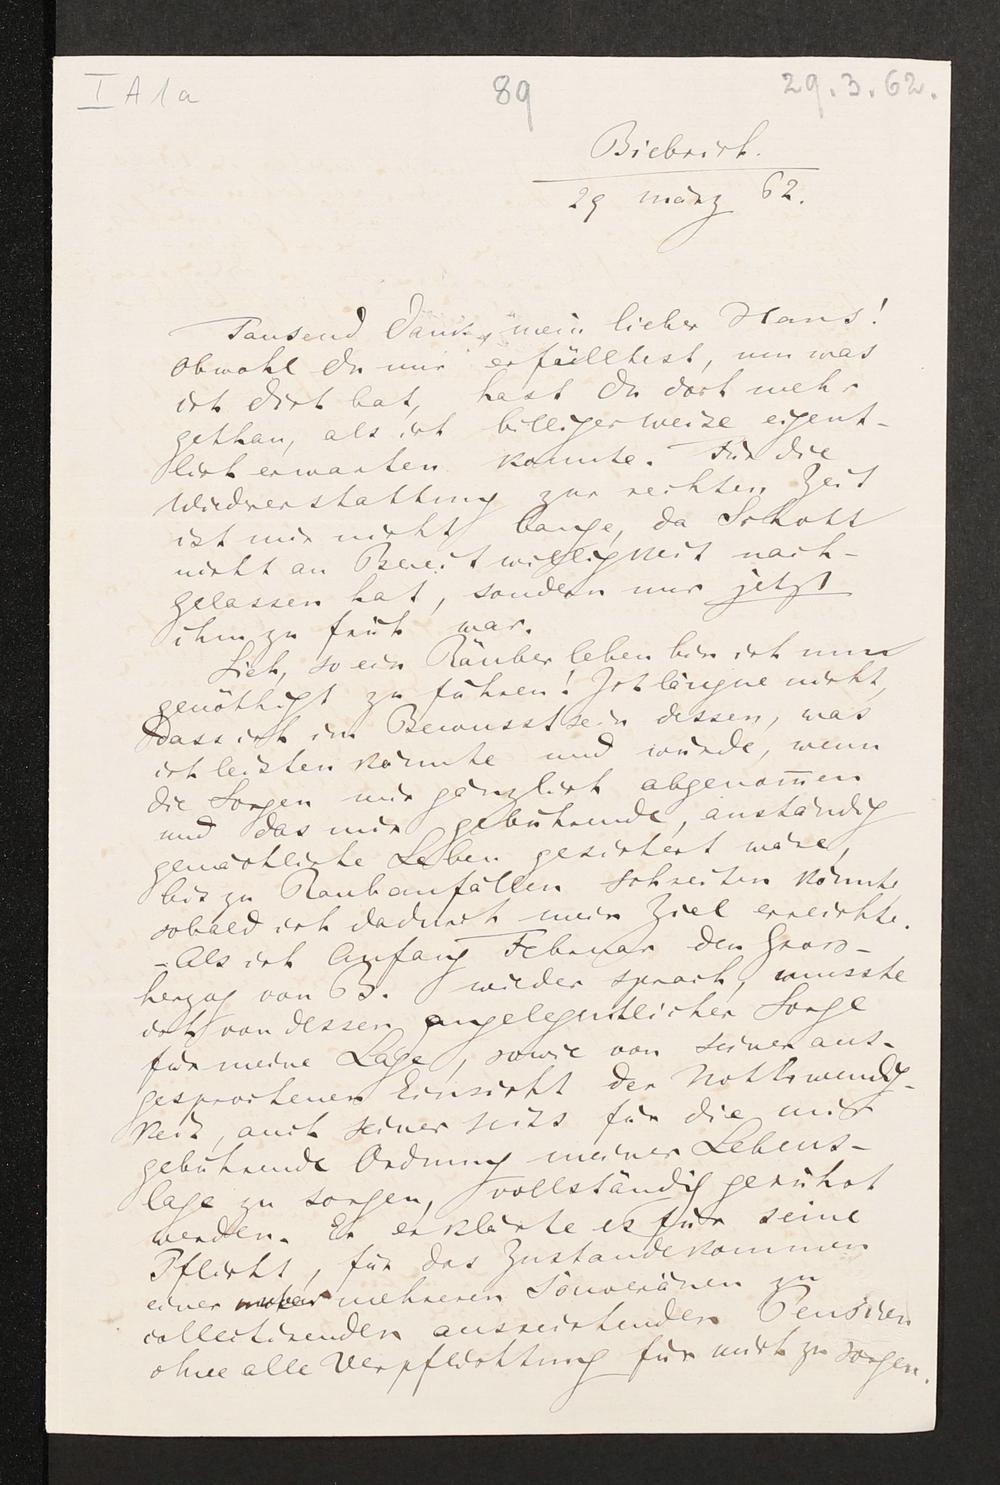 I A 1 a
89
29.3.62.
Biebrich.
29 märz 62.
Tausend Dank, mein lieber Hans!
Obwohl Du mir erfülltest, um was
ich Dich bat, hast Du doch mehr
gethan, als ich billigerweise eigent-
lich erwarten konnte. Für die
Wiedererstattung zur rechten Zeit
ist mir nicht bange, da Schott
nicht an Bereitwilligkeit nach-
gelassen hat, sondern nur jetzt
ihm zu früh war.
Sieh, so ein Räuberleben bin ich nun
genöthigt zu führen! Ich läugne nicht,
dass ich im Bewusstsein dessen, was
ich leisten könnte und würde, wenn
die Sorgen mir gänzlich abgenom̅en
und das mir gebührende, anständig
gemächliche Leben gesichert wäre,
bis zu Raubanfällen schreiten könnte,
sobald ich dadurch mein Ziel erreichte.
– Als ich Anfang Februar den Gross-
herzog von B. wieder sprach, musste
ich von dessen angelegentlicher Sorge
für meine Lage, sowie von seiner aus-
gesprochenen Einsicht der Nothwendig-
keit, auch seiner seits für die mir
gebührende Ordnung meiner Lebens-
lage zu sorgen, vollständig gerührt
werden. Er erklärte es für seine
Pflicht, für das Zustandekommen
einer mehreren Souveränen zu
collectirenden ausreichenden Pension
ohne alle Verpflichtung für mich zu sorgen.